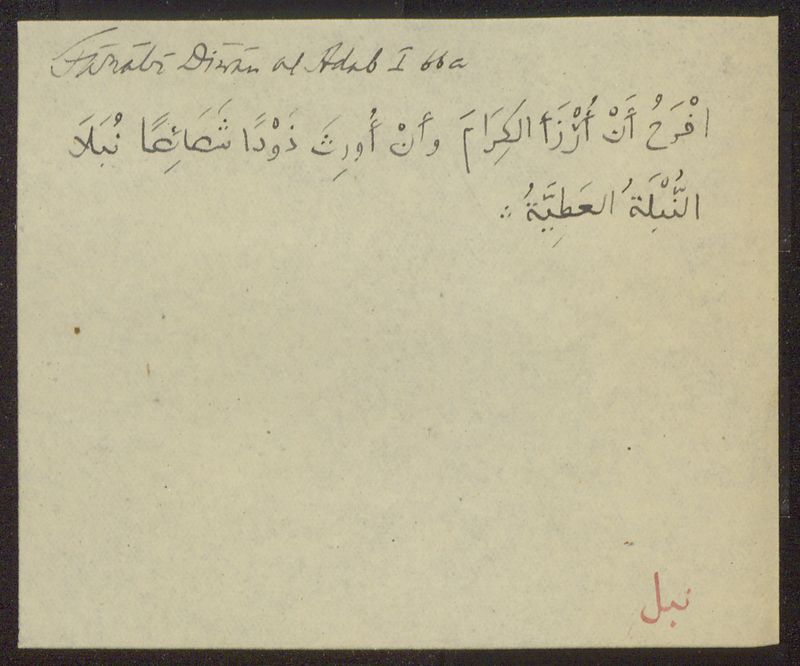 Fārābī Dīwān al Adab I 66a
افْرَحُ أَنْ أُرْزَأَ الكِرَامَ وأَنْ أُورِثَ ذَوْدًا شَصَائِصًا نُبَلَا
النُّبْلَةُ العَطِيَّةُ ؞
نبل